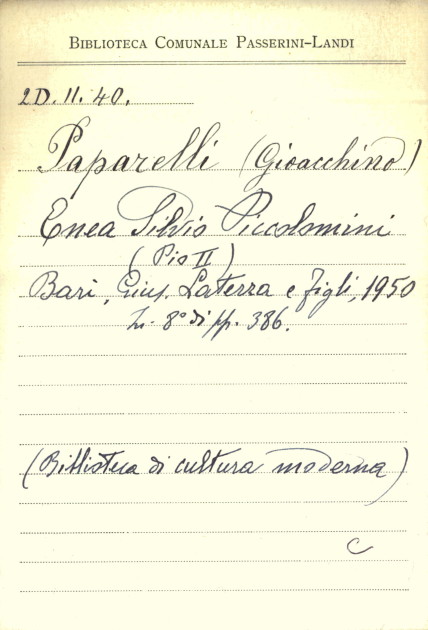 BIBLIOTECA COMUNALE PASSERINI-LANDI
2D. II. 40.
Paparelli (Gioacchino)
Enea Silvio Piccolomini
(Pio II)
Bari, Gius. Laterza e figli, 1950
In-8° di pp. 386.
(Biblioteca di cultura moderna)
C